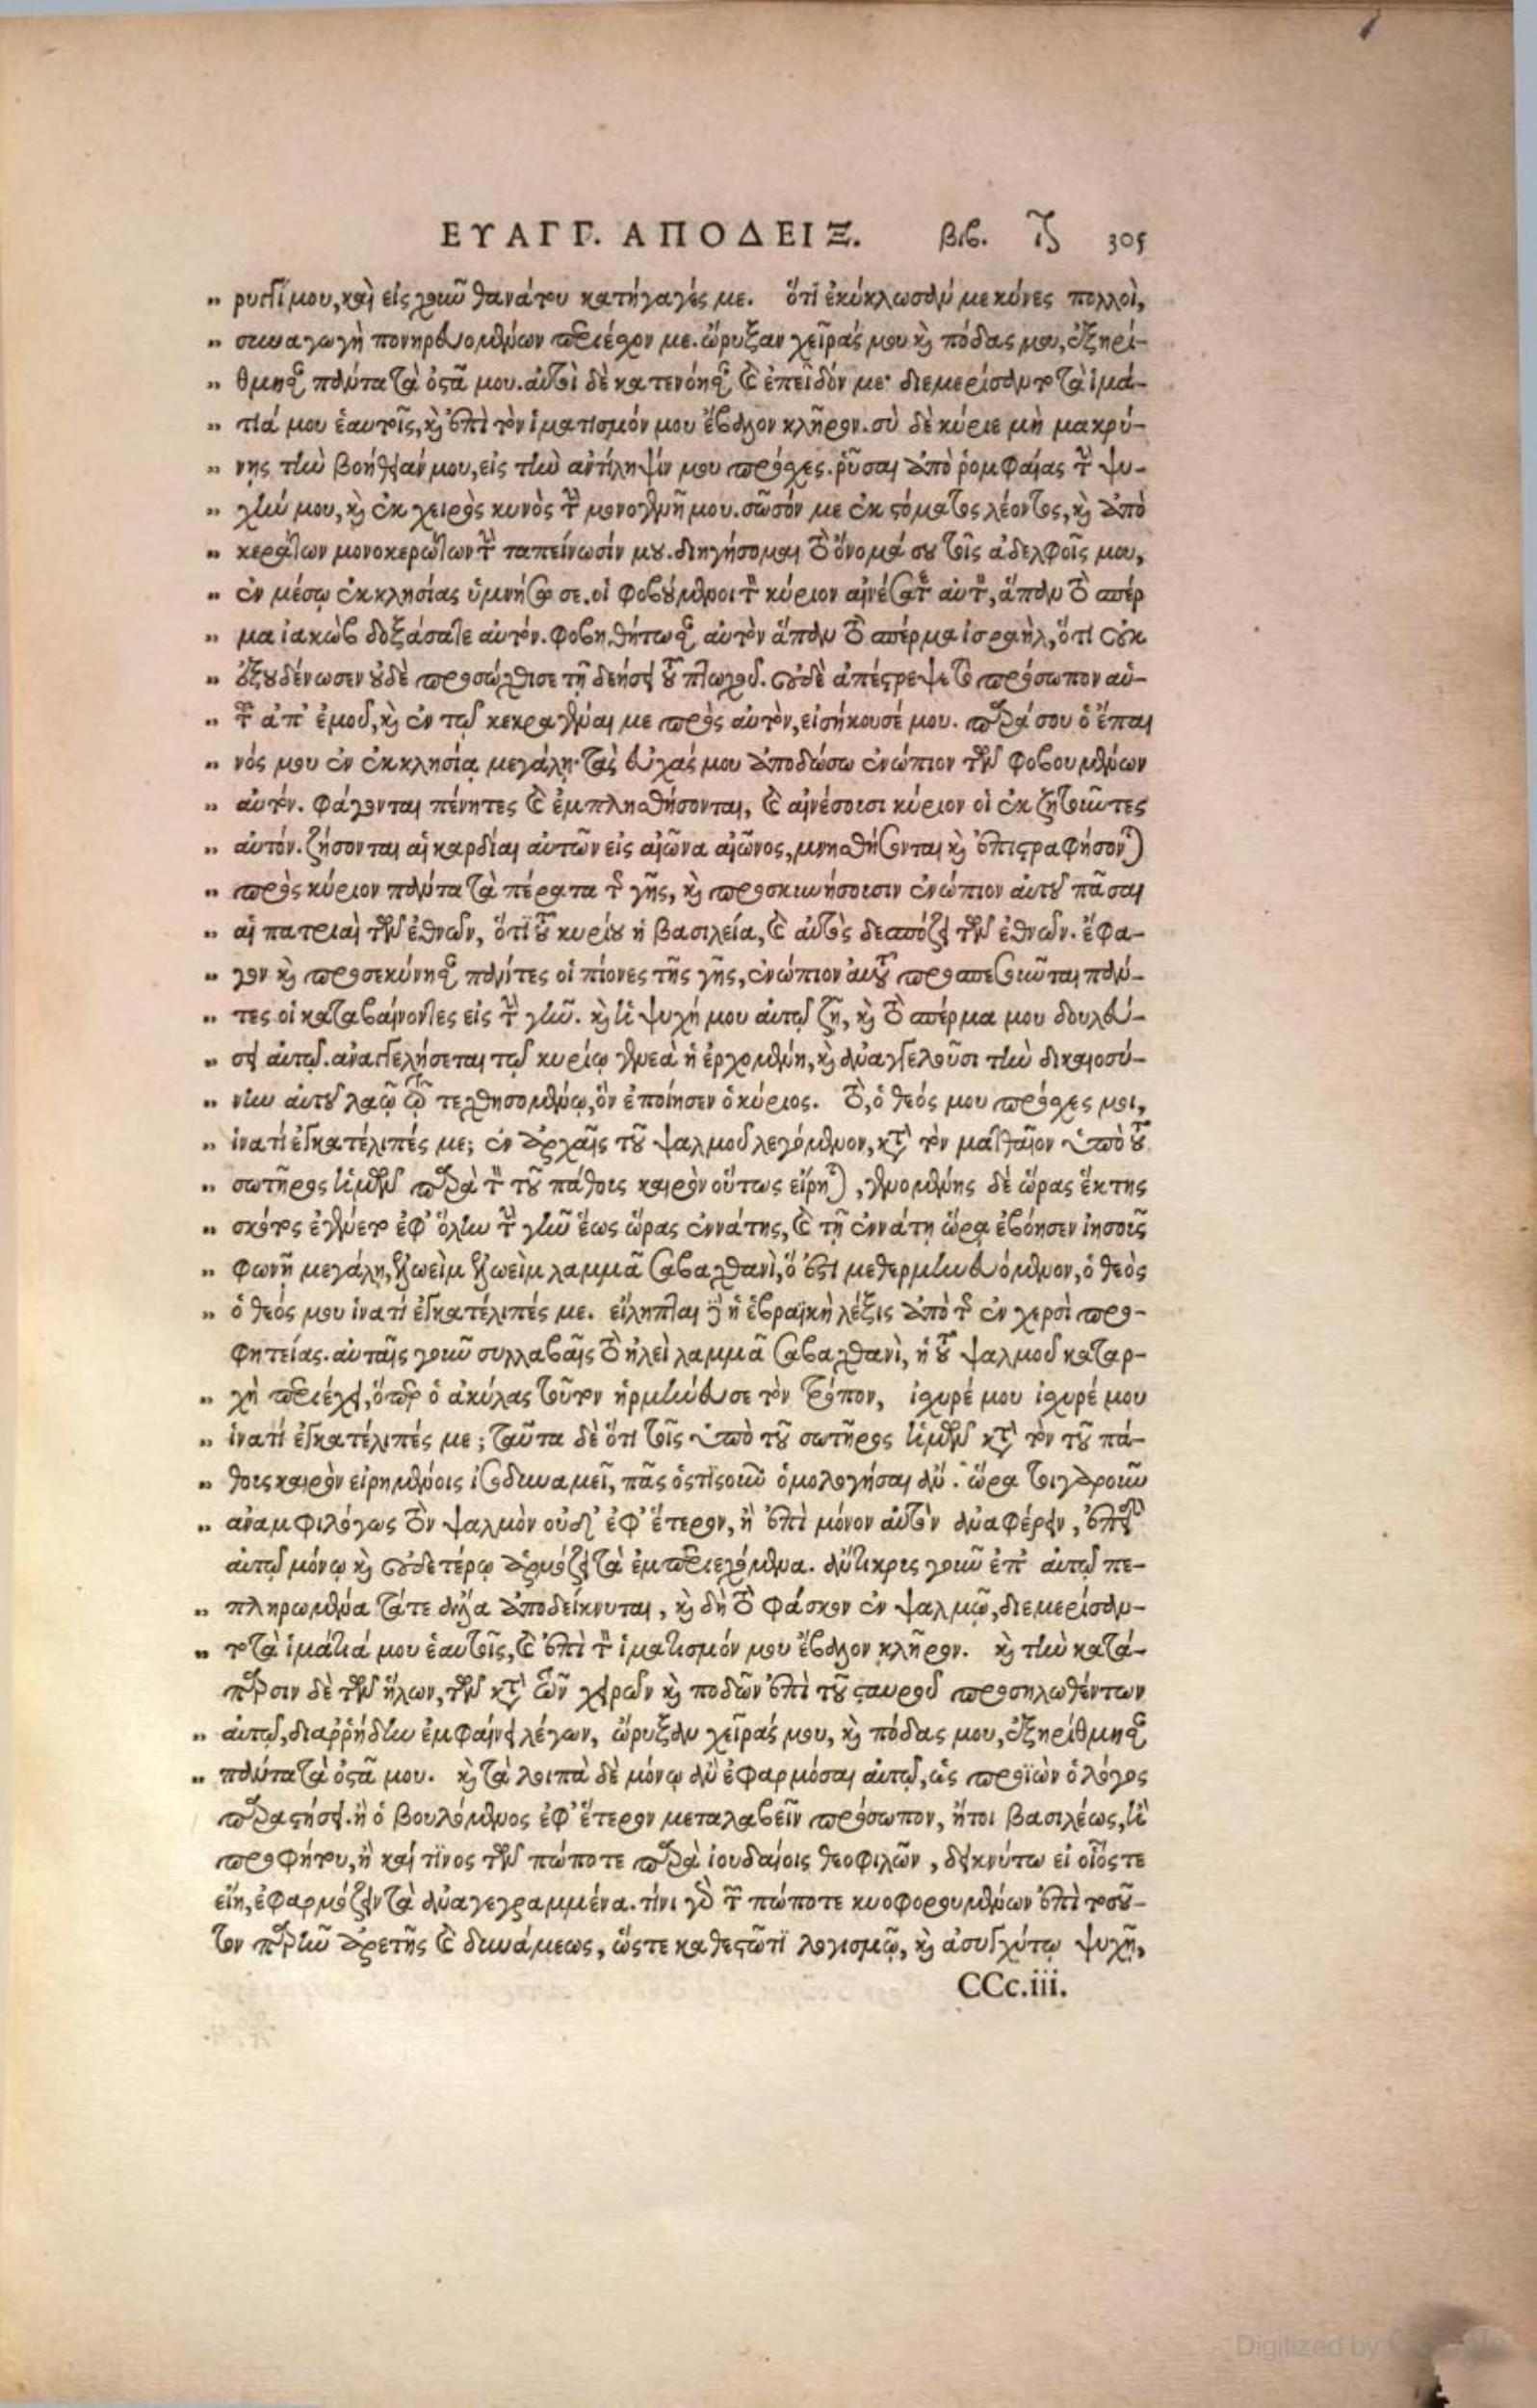 ΕΥΑΓΓ. ΑΠΟΔΕΙΞ. βιβ. ιζ 305
„ ρυγγί μου, καὶ εἰς χοῦν θανάτου κατήγαγές με. ὅτι ἐκύκλωσάν με κύνες πολλοὶ,
„ συναγωγὴ πονηρευομένων περιέσχον με. ὤρυξαν χεῖράς μου καὶ πόδας μου, ἐξηρί-
„ θμησαν πάντα τὰ ὀστᾶ μου. αὐτοὶ δὲ κατενόησαν καὶ ἐπεῖδόν με· διεμερίσαντο τὰ ἱμά-
„ τιά μου ἑαυτοῖς, καὶ ἐπὶ τὸν ἱματισμόν μου ἔβαλον κλῆρον. σὺ δὲ κύριε μὴ μακρύ-
„ νῃς τὴν βοήθειάν μου, εἰς τὴν ἀντίληψίν μου πρόσχες. ῥῦσαι ἀπὸ ῥομφαίας τὴν ψυ-
„ χήν μου, καὶ ἐκ χειρὸς κυνὸς τὴν μονογενῆ μου. σῶσόν με ἐκ στόματος λέοντος, καὶ ἀπὸ
„ κεράτων μονοκερώτων τὴν ταπείνωσίν μου. διηγήσομαι τὸ ὄνομά σου τοῖς ἀδελφοῖς μου,
„ ἐν μέσῳ ἐκκλησίας ὑμνήσω σε. οἱ φοβούμενοι τὸν κύριον αἰνέσατε αὐτὸν, ἅπαν τὸ σπέρ
„ μα ἰακὼβ δοξάσατε αὐτόν. φοβηθήτωσαν αὐτὸν ἅπαν τὸ σπέρμα ἰσραὴλ, ὅτι οὐκ
„ ἐξουδένωσεν οὐδὲ προσώχθισε τῇ δεήσει τοῦ πτωχοῦ. οὐδὲ ἀπέστρεψε τὸ πρόσωπον αὐ-
„ τοῦ ἀπ' ἐμοῦ, καὶ ἐν τῷ κεκραγέναι με πρὸς αὐτὸν, εἰσήκουσέ μου. παρά σου ὁ ἔπαι
„ νός μου ἐν ἐκκλησίᾳ μεγάλῃ· τὰς εὐχάς μου ἀποδώσω ἐνώπιον τῶν φοβουμένων
„ αὐτόν. φάγονται πένητες καὶ ἐμπλησθήσονται, καὶ αἰνέσουσι κύριον οἱ ἐκζητοῦντες
„ αὐτόν. ζήσονται αἱ καρδίαι αὐτῶν εἰς αἰῶνα αἰῶνος, μνησθήσονται καὶ ἐπιστραφήσονται
„ πρὸς κύριον πάντα τὰ πέρατα τῆς γῆς, καὶ προσκυνήσουσιν ἐνώπιον αὐτοῦ πᾶσαι
„ αἱ πατριαὶ τῶν ἐθνῶν, ὅτι τοῦ κυρίου ἡ βασιλεία, καὶ αὐτὸς δεσπόζει τῶν ἐθνῶν. ἔφα-
„ γον καὶ προσεκύνησαν πάντες οἱ πίονες τῆς γῆς, ἐνώπιον αὐτοῦ προπεσοῦνται πάν-
„ τες οἱ καταβαίνοντες εἰς τὴν γῆν. καὶ ἡ ψυχή μου αὐτῷ ζῇ, καὶ τὸ σπέρμα μου δουλεύ-
„ σει αὐτῷ. ἀναγγελήσεται τῷ κυρίῳ γενεὰ ἡ ἐρχομένη, καὶ ἀναγγελοῦσι τὴν δικαιοσύ-
„ νην αὐτοῦ λαῷ τῷ τεχθησομένῳ, ὃν ἐποίησεν ὁ κύριος. τὸ, ὁ θεός μου πρόσχες μοι,
„ ἱνατί ἐγκατέλιπές με; ἐν ἀρχαῖς τοῦ ψαλμοῦ λεγόμενον, κατὰ τὸν ματθαῖον ὑπὸ τοῦ
„ σωτῆρος ἡμῶν παρὰ τὸν τοῦ πάθους καιρὸν οὕτως εἴρηται, γενομένης δὲ ὥρας ἕκτης
„ σκότος ἐγένετο ἐφ' ὅλην τὴν γῆν ἕως ὥρας ἐννάτης, καὶ τῇ ἐννάτῃ ὥρᾳ ἐβόησεν ἰησοῦς
„ φωνῇ μεγάλῃ, ἐλωεὶμ ἐλωεὶμ λαμμᾶ σαβαχθανὶ, ὅ ἐστι μεθερμηνευόμενον, ὁ θεὸς
„ ὁ θεός μου ἱνατί ἐγκατέλιπές με. εἴληπται γοῦν ἡ ἑβραϊκὴ λέξις ἀπὸ τῆς ἐν χερσὶ προ-
φητείας. αὐταῖς γοῦν συλλαβαῖς τὸ ἠλεὶ λαμμᾶ σαβαχθανὶ, ἡ τοῦ ψαλμοῦ καταρ-
„ χὴ περιέχει, ὅπερ ὁ ἀκύλας τοῦτον ἡρμήνευσε τὸν τρόπον, ἰσχυρέ μου ἰσχυρέ μου
„ ἱνατί ἐγκατέλιπές με; ταῦτα δὲ ὅτι τοῖς ὑπὸ τοῦ σωτῆρος ἡμῶν κατὰ τὸν τοῦ πά-
„ θους καιρὸν εἰρημένοις ἰσοδυναμεῖ, πᾶς ὁστισοῦν ὁμολογήσαι ἄν. ὥρα τοιγαροῦν
„ ἀναμφιλόγως τὸν ψαλμὸν οὐδ' ἐφ' ἕτερον, ἢ ἐπὶ μόνον αὐτὸν ἀναφέρειν, ἐπεὶ
αὐτῷ μόνῳ καὶ οὐδετέρῳ ἁρμόζει τὰ ἐμπεριεχόμενα. ἄντικρις γοῦν ἐπ' αὐτῷ πε-
„ πληρωμένα τά τε ἄλλα ἀποδείκνυται, καὶ δὴ τὸ φάσκον ἐν ψαλμῷ, διεμερίσαν-
„ το τὰ ἱμάτιά μου ἑαυτοῖς, καὶ ἐπὶ τὸν ἱματισμόν μου ἔβαλον κλῆρον. καὶ τὴν κατά-
παρσιν δὲ τῶν ἥλων, τῶν κατὰ τῶν χειρῶν καὶ ποδῶν ἐπὶ τοῦ σταυροῦ προσηλωθέντων
„ αὐτῷ, διαῤῥήδην ἐμφαίνει λέγων, ὤρυξαν χεῖράς μου, καὶ πόδας μου, ἐξηρίθμησαν
„ πάντα τὰ ὀστᾶ μου. καὶ τὰ λοιπὰ δὲ μόνῳ ἂν ἐφαρμόσαι αὐτῷ, ὡς προϊὼν ὁ λόγος
παραστήσει. ἢ ὁ βουλόμενος ἐφ' ἕτερον μεταλαβεῖν πρόσωπον, ἤτοι βασιλέως, ἢ
προφήτου, ἢ καί τινος τῶν πώποτε παρὰ ἰουδαίοις θεοφιλῶν, δεικνύτω εἰ οἷός τε
εἴη, ἐφαρμόζειν τὰ ἀναγεγραμμένα. τίνι γὰρ τῶν πώποτε κυοφορουμένων ἐπὶ τοσοῦ-
τον παρῆν ἀρετῆς καὶ δυνάμεως, ὥστε καθεστῶτι λογισμῷ, καὶ ἀσυγχύτῳ ψυχῇ,
CCc.iii.
Digitized by Google